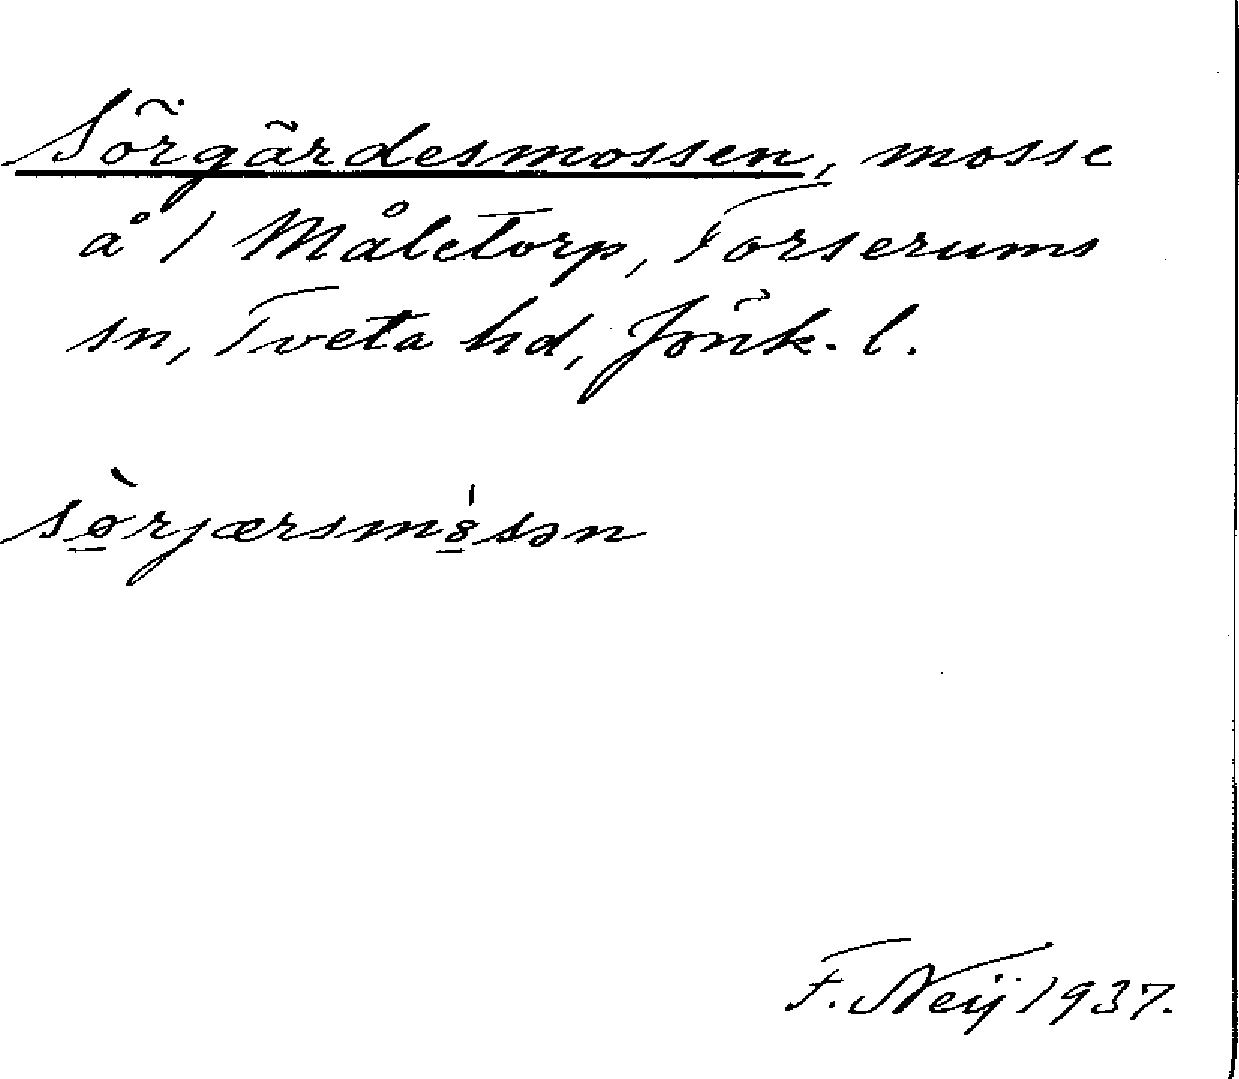 Sörgärdesmossen, mosse
å 1 Måletorp, Forserums
sn, Tveta hd, Jönk. l.
sø̱̀rjærsmȣ̱́sən
F. Neij 1937.